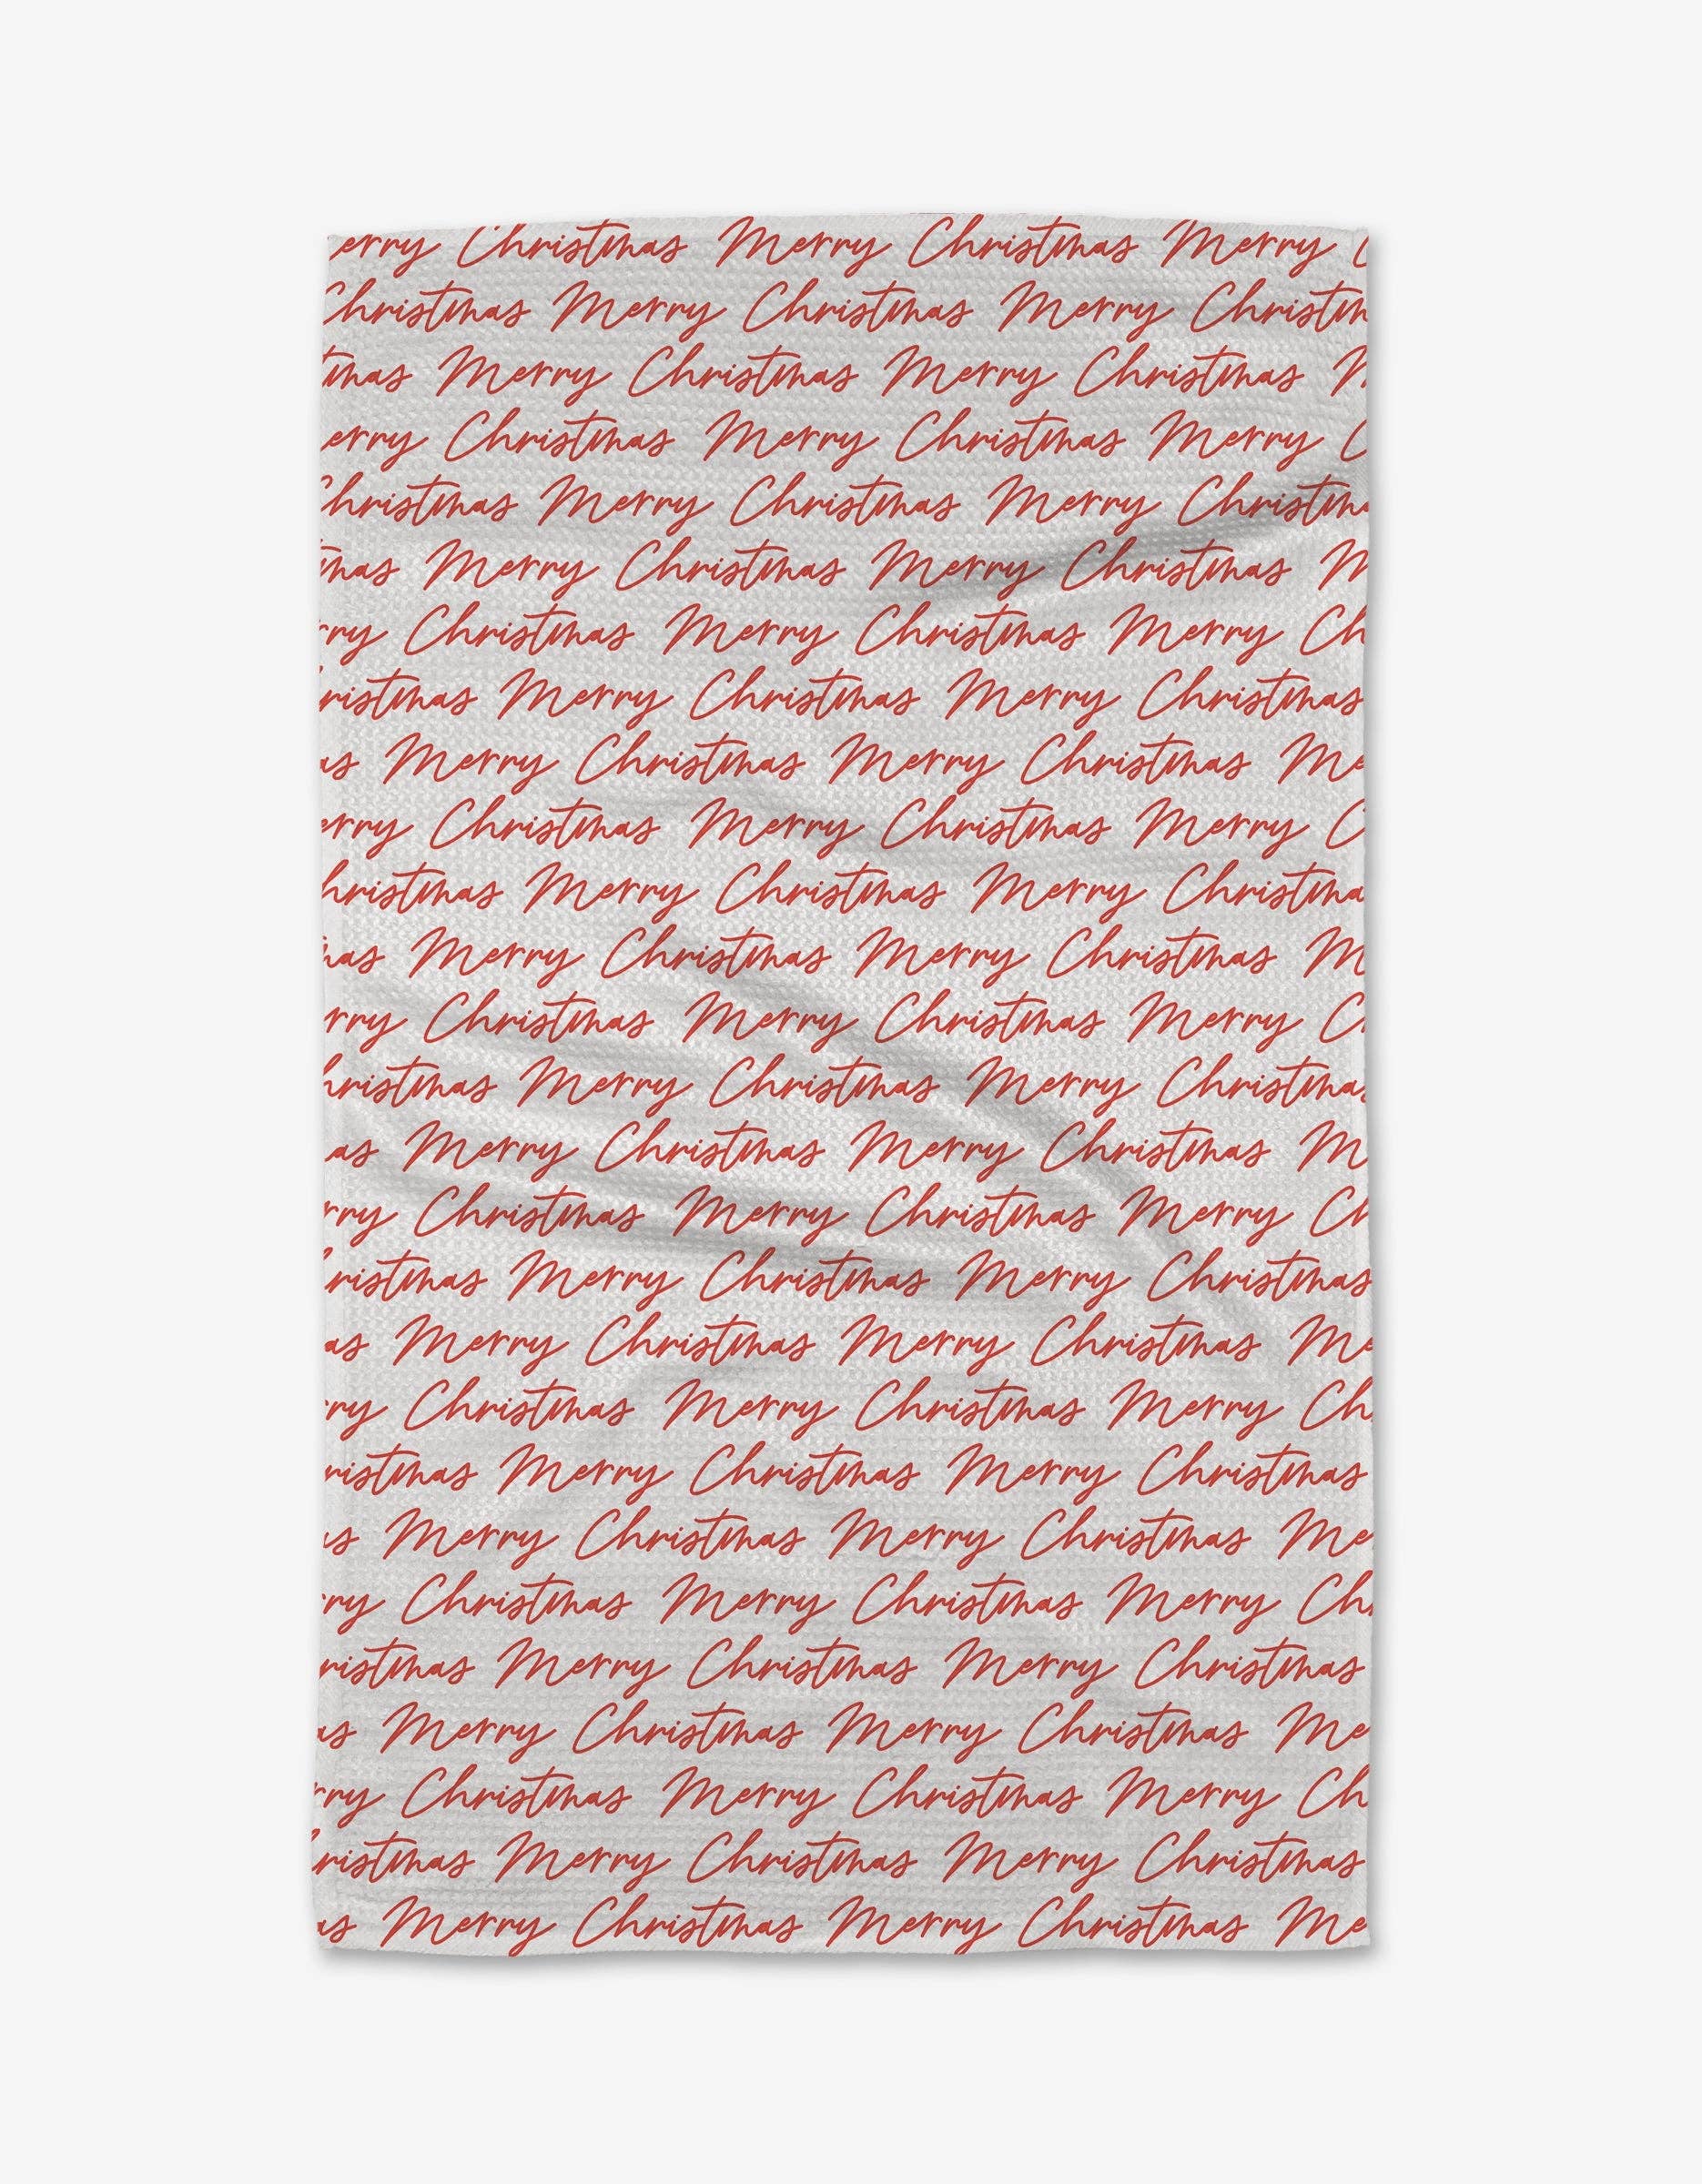 erry Christmas Merry Christmas Merry C
Christmas Merry Christmas Merry Christm
tmas Merry Christmas Merry Christmas M
erry Christmas Merry Christmas Merry C
Christmas Merry Christmas Merry Christma
tmas Merry Christmas Merry Christmas M
rry Christmas Merry Christmas Merry Ch
ristmas Merry Christmas Merry Christmas
as Merry Christmas Merry Christmas Me
erry Christmas Merry Christmas Merry C
hristmas Merry Christmas Merry Christma
mas Merry Christmas Merry Christmas M
rry Christmas Merry Christmas Merry C
hristmas Merry Christmas Merry Christmas
as Merry Christmas Merry Christmas M
rry Christmas Merry Christmas Merry Ch
ristmas Merry Christmas Merry Christmas
as Merry Christmas Merry Christmas Me
ry Christmas Merry Christmas Merry Ch
ristmas Merry Christmas Merry Christmas
as Merry Christmas Merry Christmas Me
ry Christmas Merry Christmas Merry Ch
ristmas Merry Christmas Merry Christmas
as Merry Christmas Merry Christmas Me
rry Christmas Merry Christmas Merry Ch
ristmas Merry Christmas Merry Christmas
as Merry Christmas Merry Christmas Me